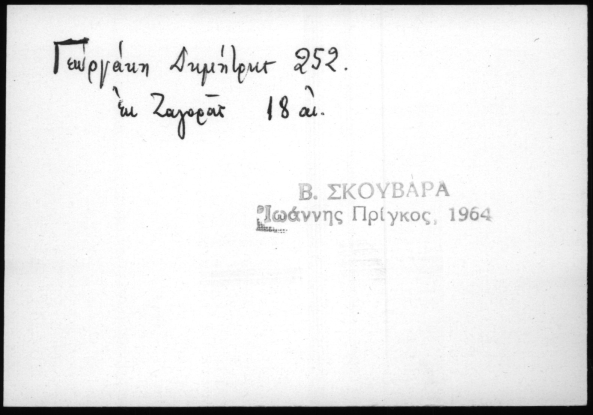 Γεωργάκη Δημήτρης 252.
ἐκ Ζαγορᾶς 18 αἰ.
Β. ΣΚΟΥΒΑΡΑ
Ἰωάννης Πρίγκος, 1964